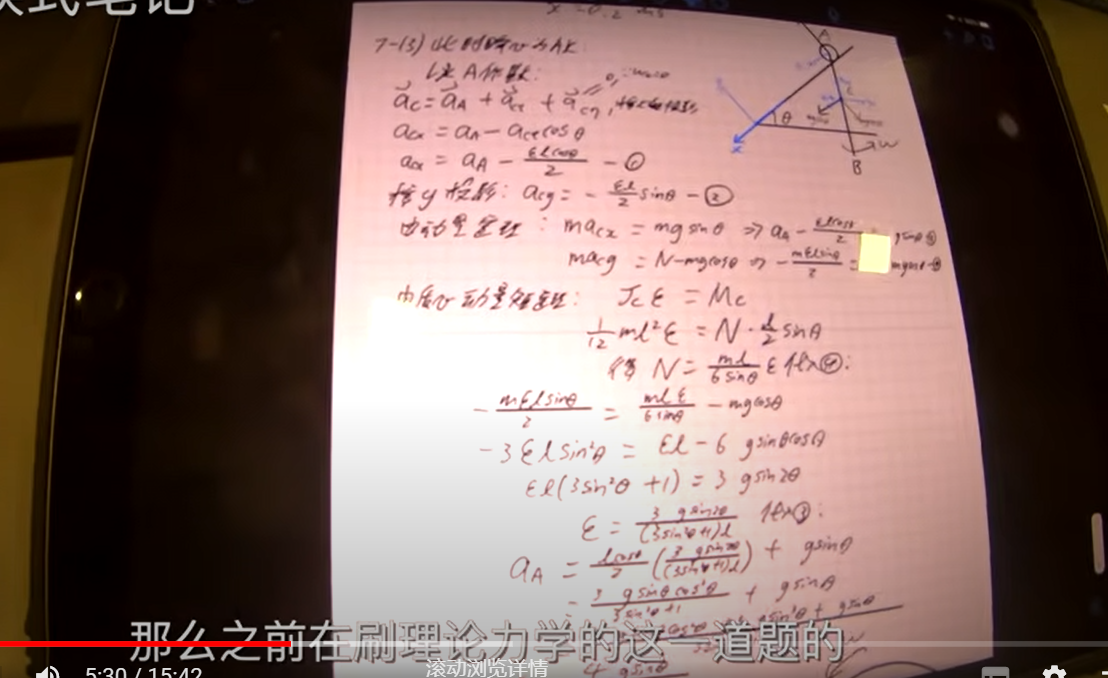 款式笔记
7-(3)
以A作基点:
a⃗c = a⃗A + a⃗cτ + a⃗cη
acx = aA - acτ cosθ
acx = aA - εlcosθ/2 - ①
按y投影: acy = - εl/2 sinθ - ②
由动量定理: macx = mgsinθ ⇒ aA - εlcosθ/2 = gsinθ ③
macy = N-mgcosθ ⇒ - mεlsinθ/2 = mgcosθ-④
Jcε = Mc
1/12 ml²ε = N · l/2 sinθ
得 N = ml/6sinθ ε 代入④:
- mεlsinθ/2 = mlε/6sinθ - mgcosθ
-3εlsin²θ = εl - 6 gsinθcosθ
εl(3sin²θ + 1) = 3 gsin2θ
ε = 3 gsin2θ/(3sin²θ+1)l 代入③:
aA = lcosθ/2 (3 gsin2θ/(3sin²θ+1)l) + gsinθ
= 3 gsinθcos²θ/3sin²θ+1 + gsinθ
4 gsinθ
A
θ
x
ω
B
那么之前在刷理论力学的这一道题的
5:30 / 15:42
滚动浏览详情